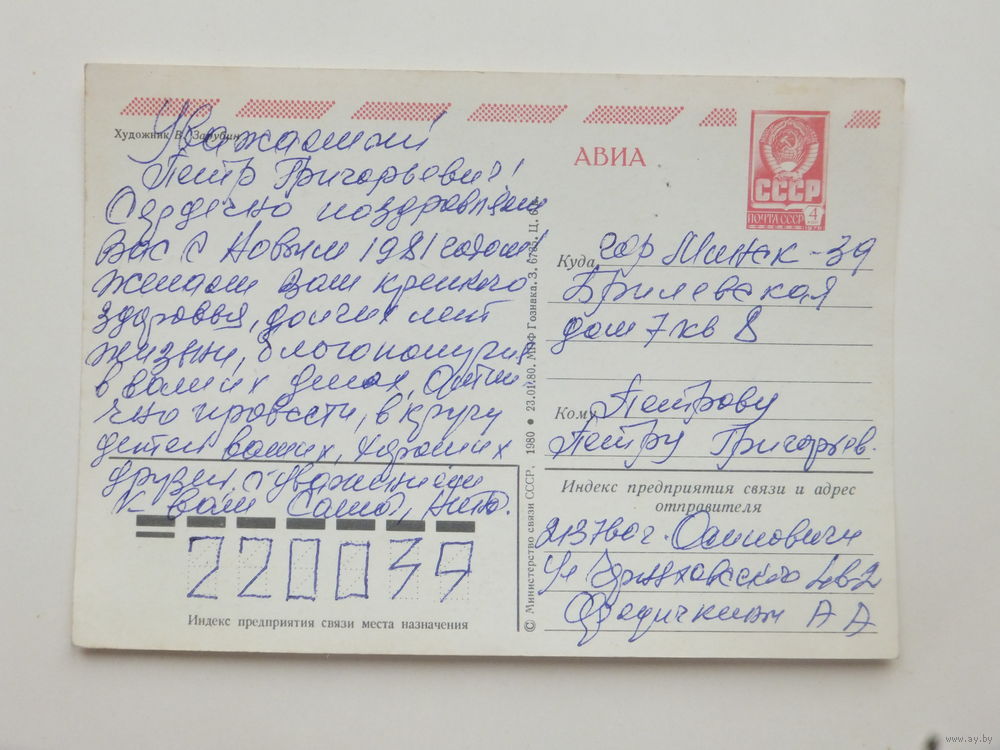 Художник В. Зарубин
Уважаемый
Петр Григорьевич!
Сердечно поздравляем
Вас с Новым 1981 годом!
желаем Вам крепкого
здоровья, долгих лет
жизни, благополучия
в ваших делах,
провести, в кругу
детей ваших, хороших
друзей. с уважением
к вам Саша,
220039
Индекс предприятия связи места назначения
© Министерство связи СССР. 1980 • 23.01.80. МПФ Гознака. З. 6785. Ц. 6
АВИА
СССР
ПОЧТА СССР
4
Куда гор Минск-39
Брилевская
дом 7 кв 8
Кому Петрову
Петру Григорьев.
Индекс предприятия связи и адрес
отправителя
213760 г. Осиповичи
Ул
А А
www.ay.by